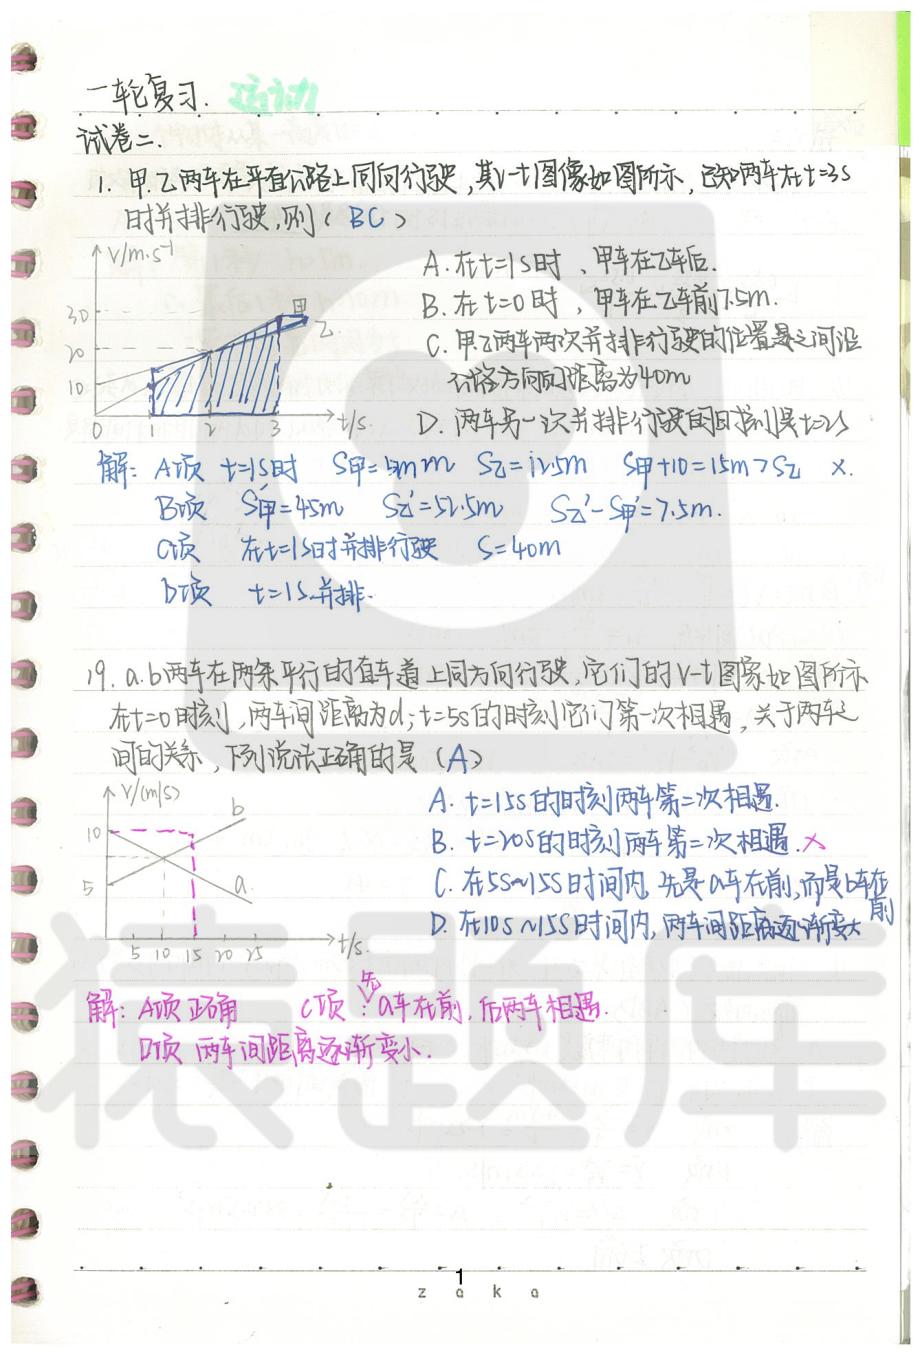 一轮复习. 运动
试卷二.
1. 甲.乙两车在平直公路上同向行驶,其v-t图像如图所示,已知两车在t=3s
时并排行驶,则( BC )
V/m·s⁻¹
30
20
10
0 1 2 3 t/s.
甲
乙.
A. 在t=1s时 , 甲车在乙车后.
B. 在t=0时 , 甲车在乙车前7.5m.
C. 甲乙两车两次并排行驶的位置之间沿
公路方向的距离为40m
D. 两车另一次并排行驶的时刻是t=2s
解: A项 t=1s时 S甲=5m S乙=12.5m S甲+10=15m>S乙 ×.
B项 S甲'=45m S乙'=52.5m S乙'-S甲'=7.5m.
C项 在t=1s时并排行驶 S=40m
D项 t=1s.并排.
19. a.b两车在两条平行的直车道上同方向行驶,它们的v-t图象如图所示
在t=0时刻,两车间距离为d;t=5s的时刻它们第一次相遇,关于两车之
间的关系,下列说法正确的是 (A)
V/(m/s)
10
5
5 10 15 20 25 t/s.
b
a.
A. t=15s的时刻两车第二次相遇.
B. t=20s的时刻两车第二次相遇. ×
C. 在5s~15s时间内 先是a车在前,而是b车在
前
D. 在10s~15s时间内,两车间距离逐渐变大
解: A项正确 C项:先a车在前,后两车相遇.
D项 两车间距离逐渐变小.
猿题库
1
zaka